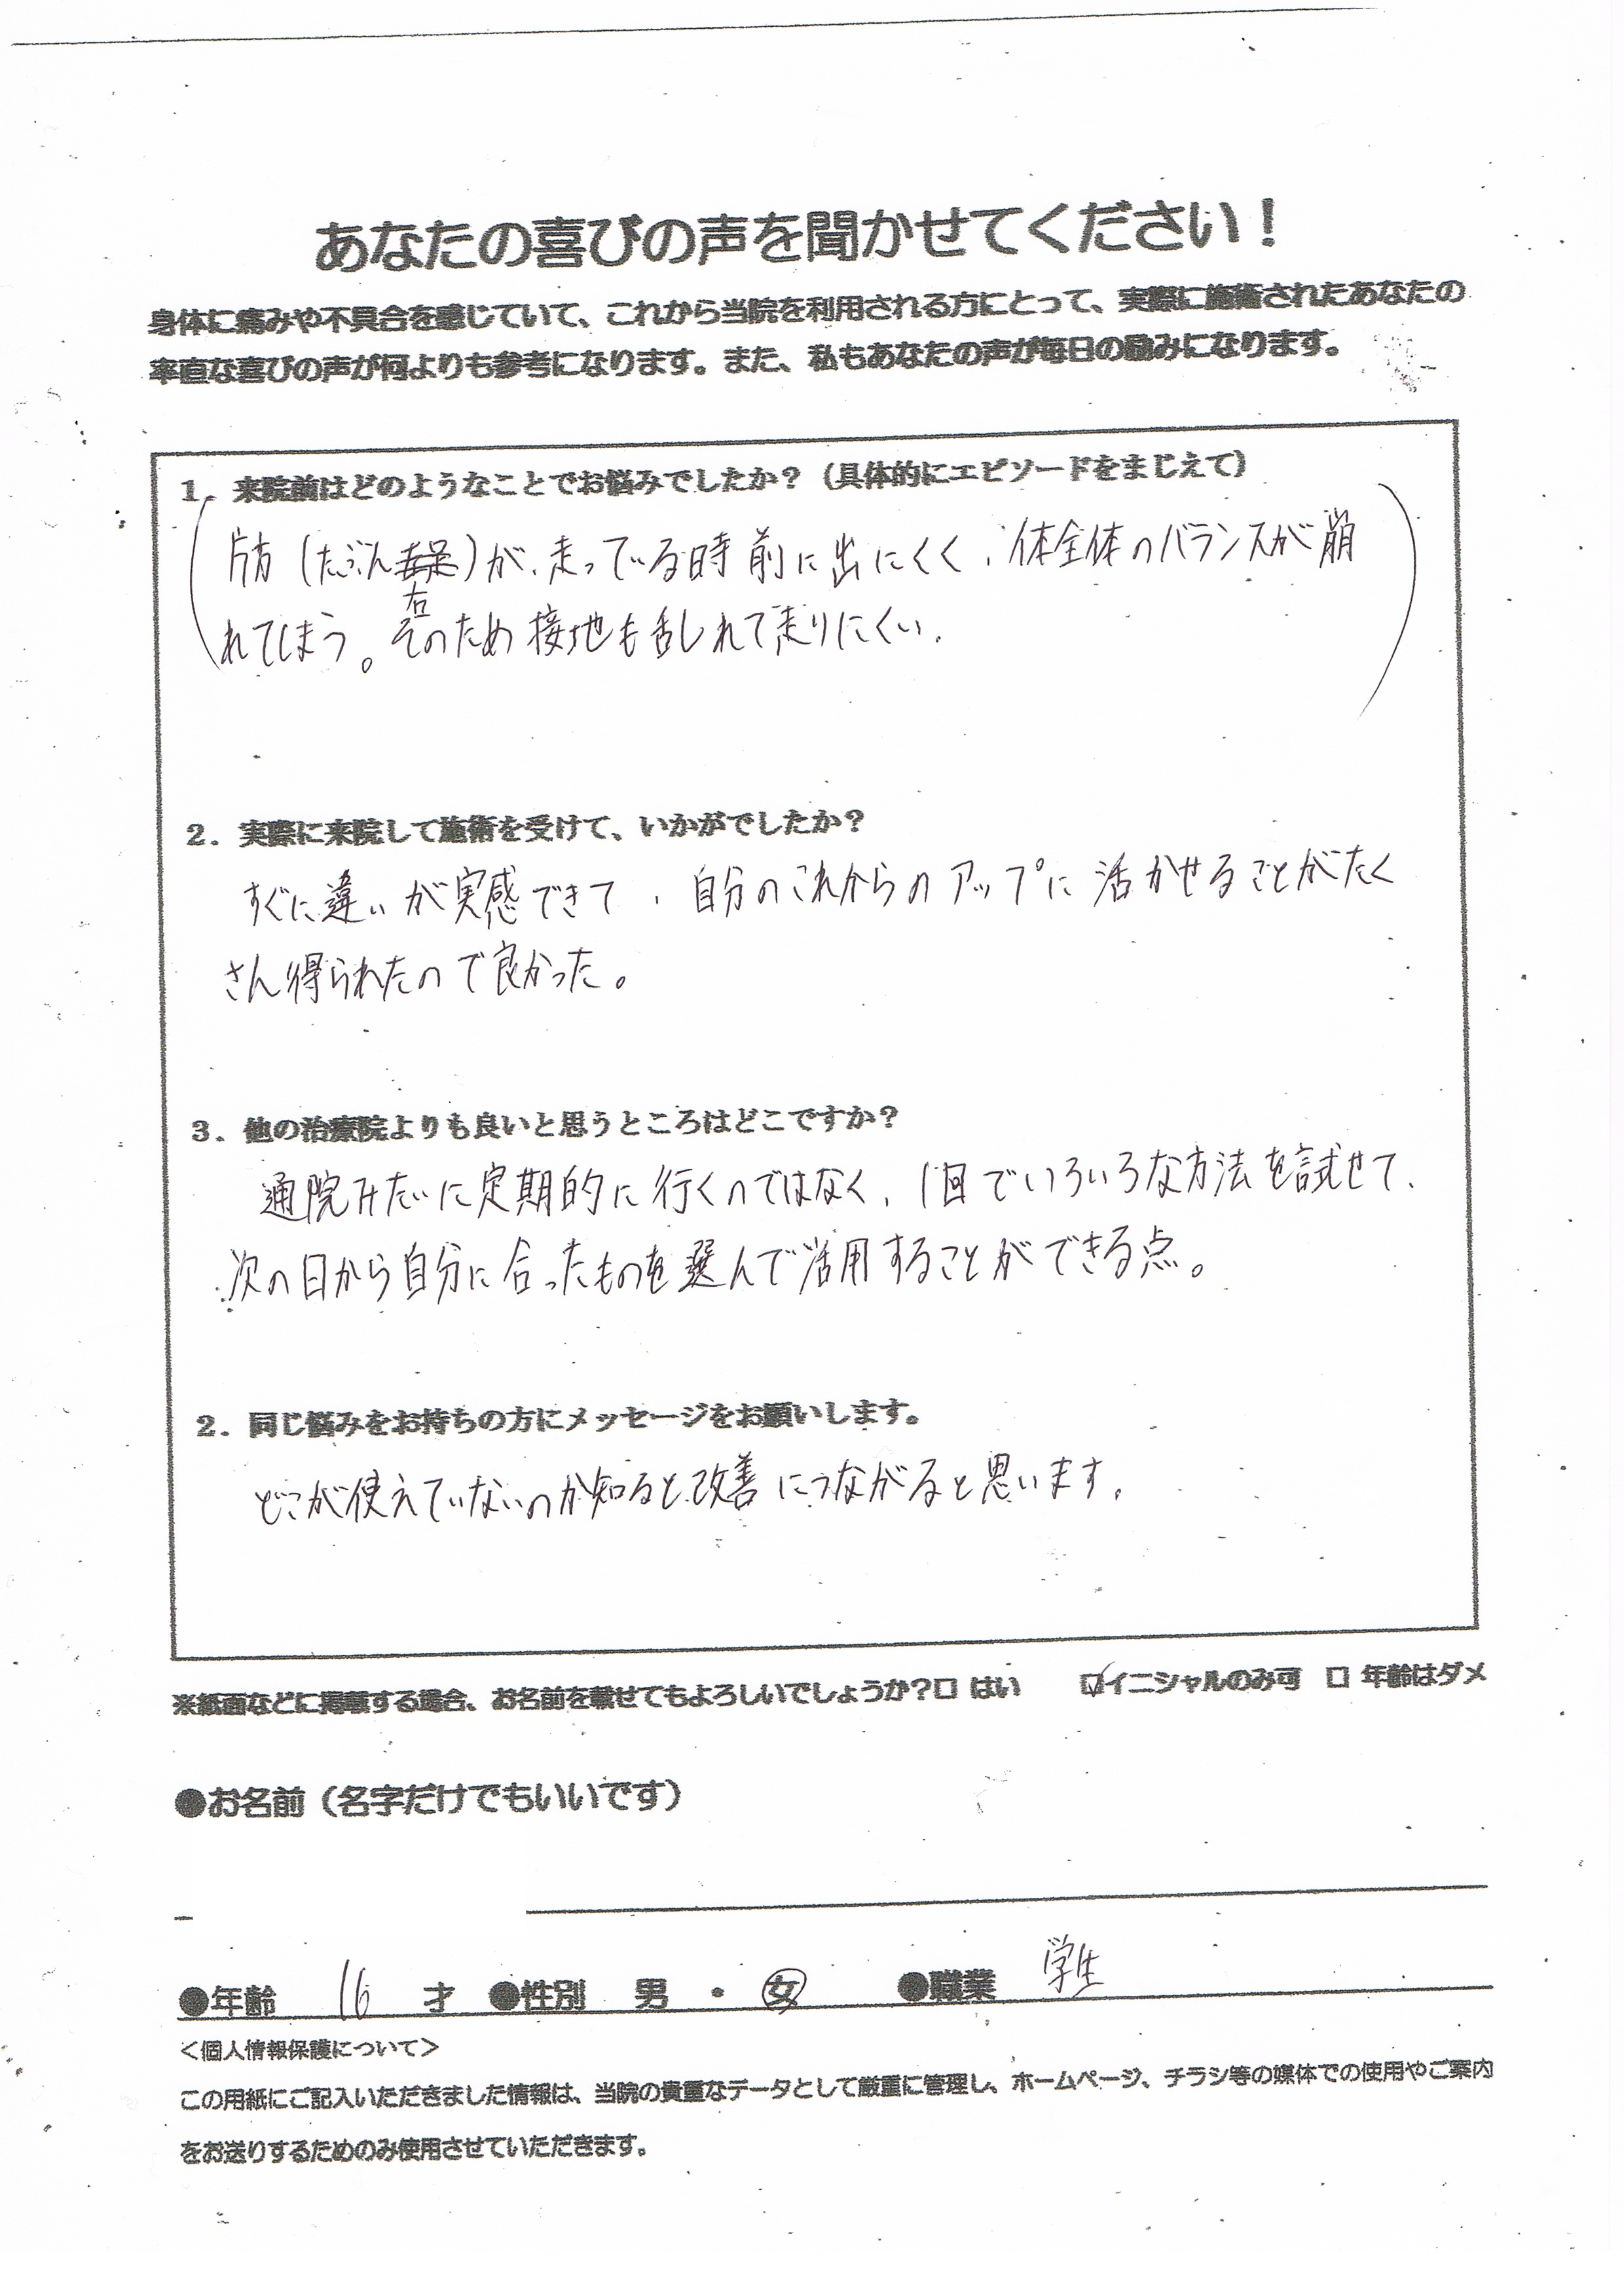 あなたの喜びの声を聞かせてください！
身体に痛みや不具合を感じていて、これから当院を利用される方にとって、実際に施術されたあなたの
率直な喜びの声が何よりも参考になります。また、私もあなたの声が毎日の励みになります。
1．来院前はどのようなことでお悩みでしたか？（具体的にエピソードをまじえて）
片方（たぶん）が、走っている時前に出にくく、体全体のバランスが崩
右
れてしまう。そのため接地も乱れて走りにくい。
2．実際に来院して施術を受けて、いかがでしたか？
すぐに違いが実感できて、自分のこれからのアップに活かせることがたく
さん得られたので良かった。
3．他の治療院よりも良いと思うところはどこですか？
通院みたいに定期的に行くのではなく、1回でいろいろな方法を試せて、
次の日から自分に合ったものを選んで活用することができる点。
2．同じ悩みをお持ちの方にメッセージをお願いします。
どこが使えていないのか知ると改善につながると思います。
※紙面などに掲載する場合、お名前を載せてもよろしいでしょうか？□ はい ☑イニシャルのみ可 □ 年齢はダメ
●お名前（名字だけでもいいです）
●年齢 16 才 ●性別 男 ・ 女 ●職業 学生
＜個人情報保護について＞
この用紙にご記入いただきました情報は、当院の貴重なデータとして厳重に管理し、ホームページ、チラシ等の媒体での使用やご案内
をお送りするためのみ使用させていただきます。